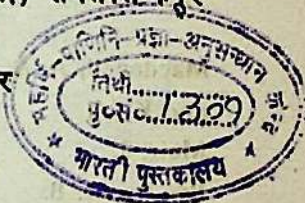 र
महर्षि-पाणिनि-प्रज्ञा-अनुसन्धान
तिथी............
पु०सं० 1309
* भारती पुस्तकालय *